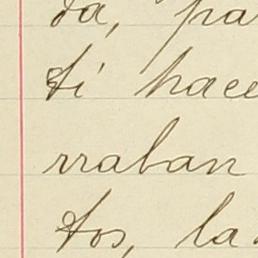 da, pa
ti hace
rraban
tos, la